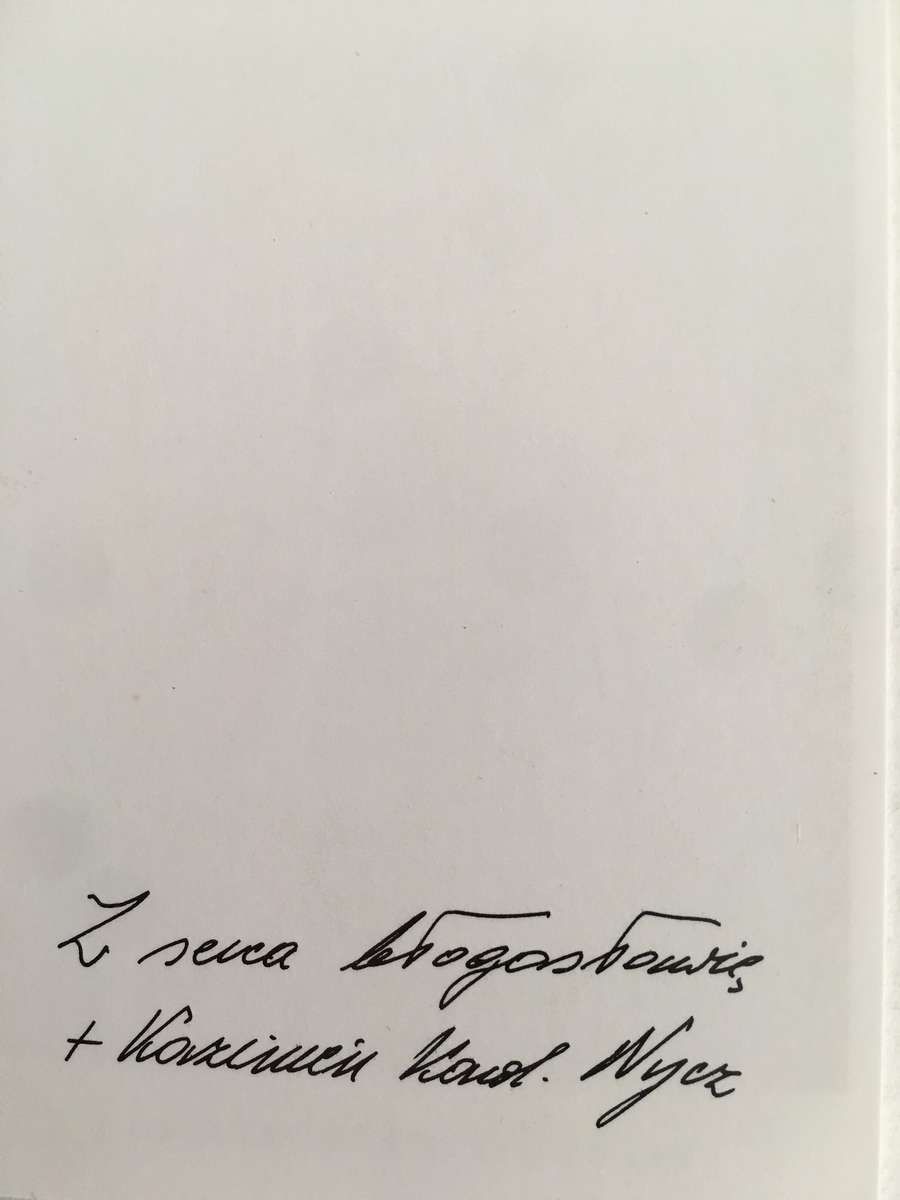 Z serca błogosławię
+ Kazimierz Kard. Nycz